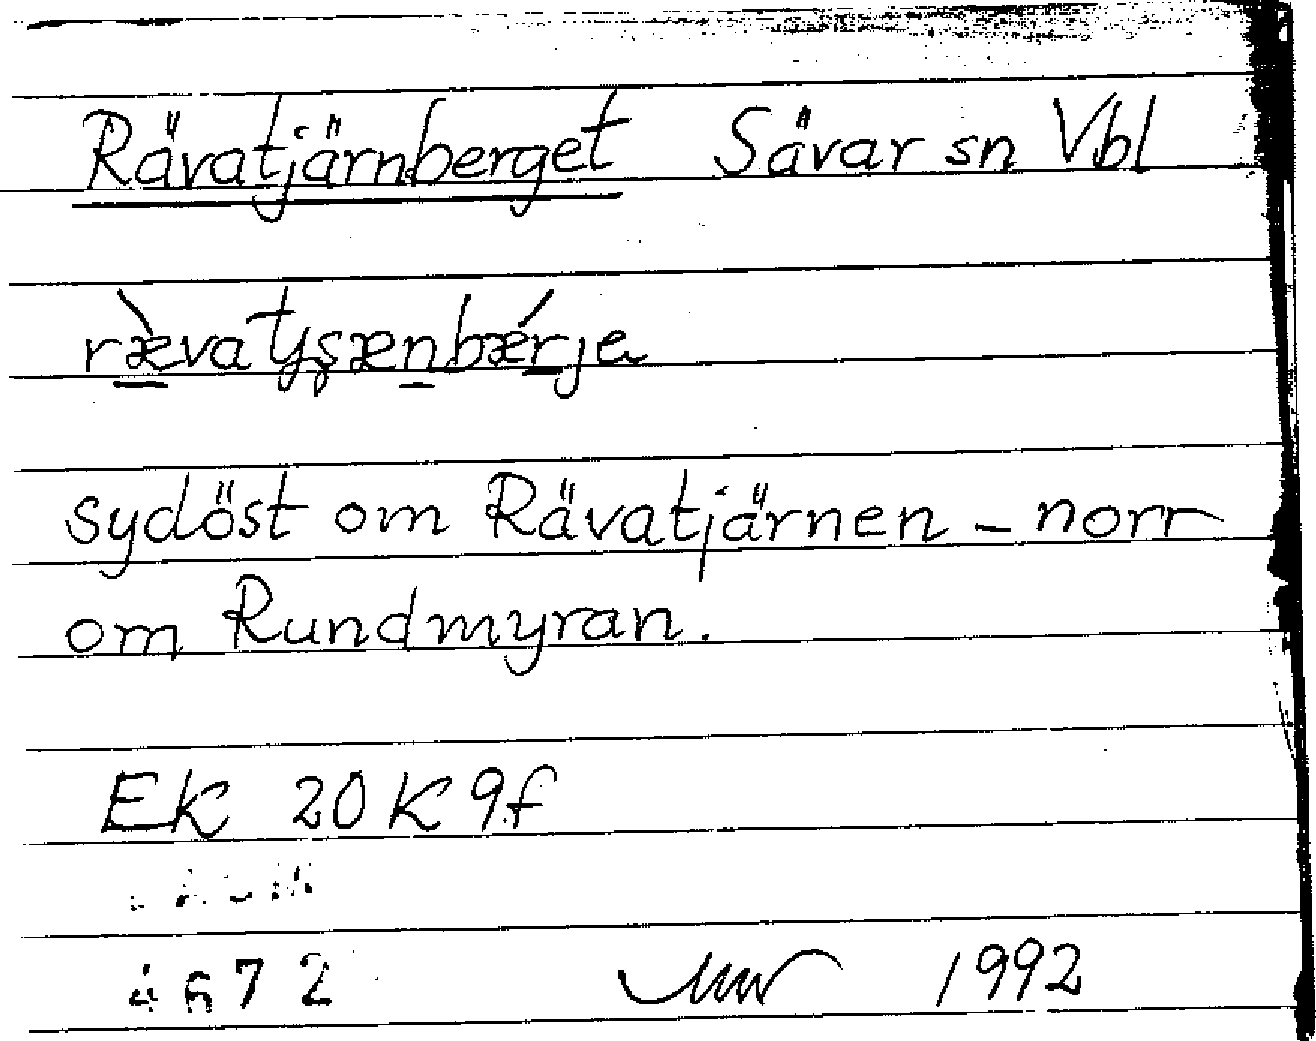 Rävatjärnberget Sävar sn Vbl
rævatyʂænbǽrje
sydöst om Rävatjärnen - norr
om Rundmyran.
EK 20K 9f
4672 1992